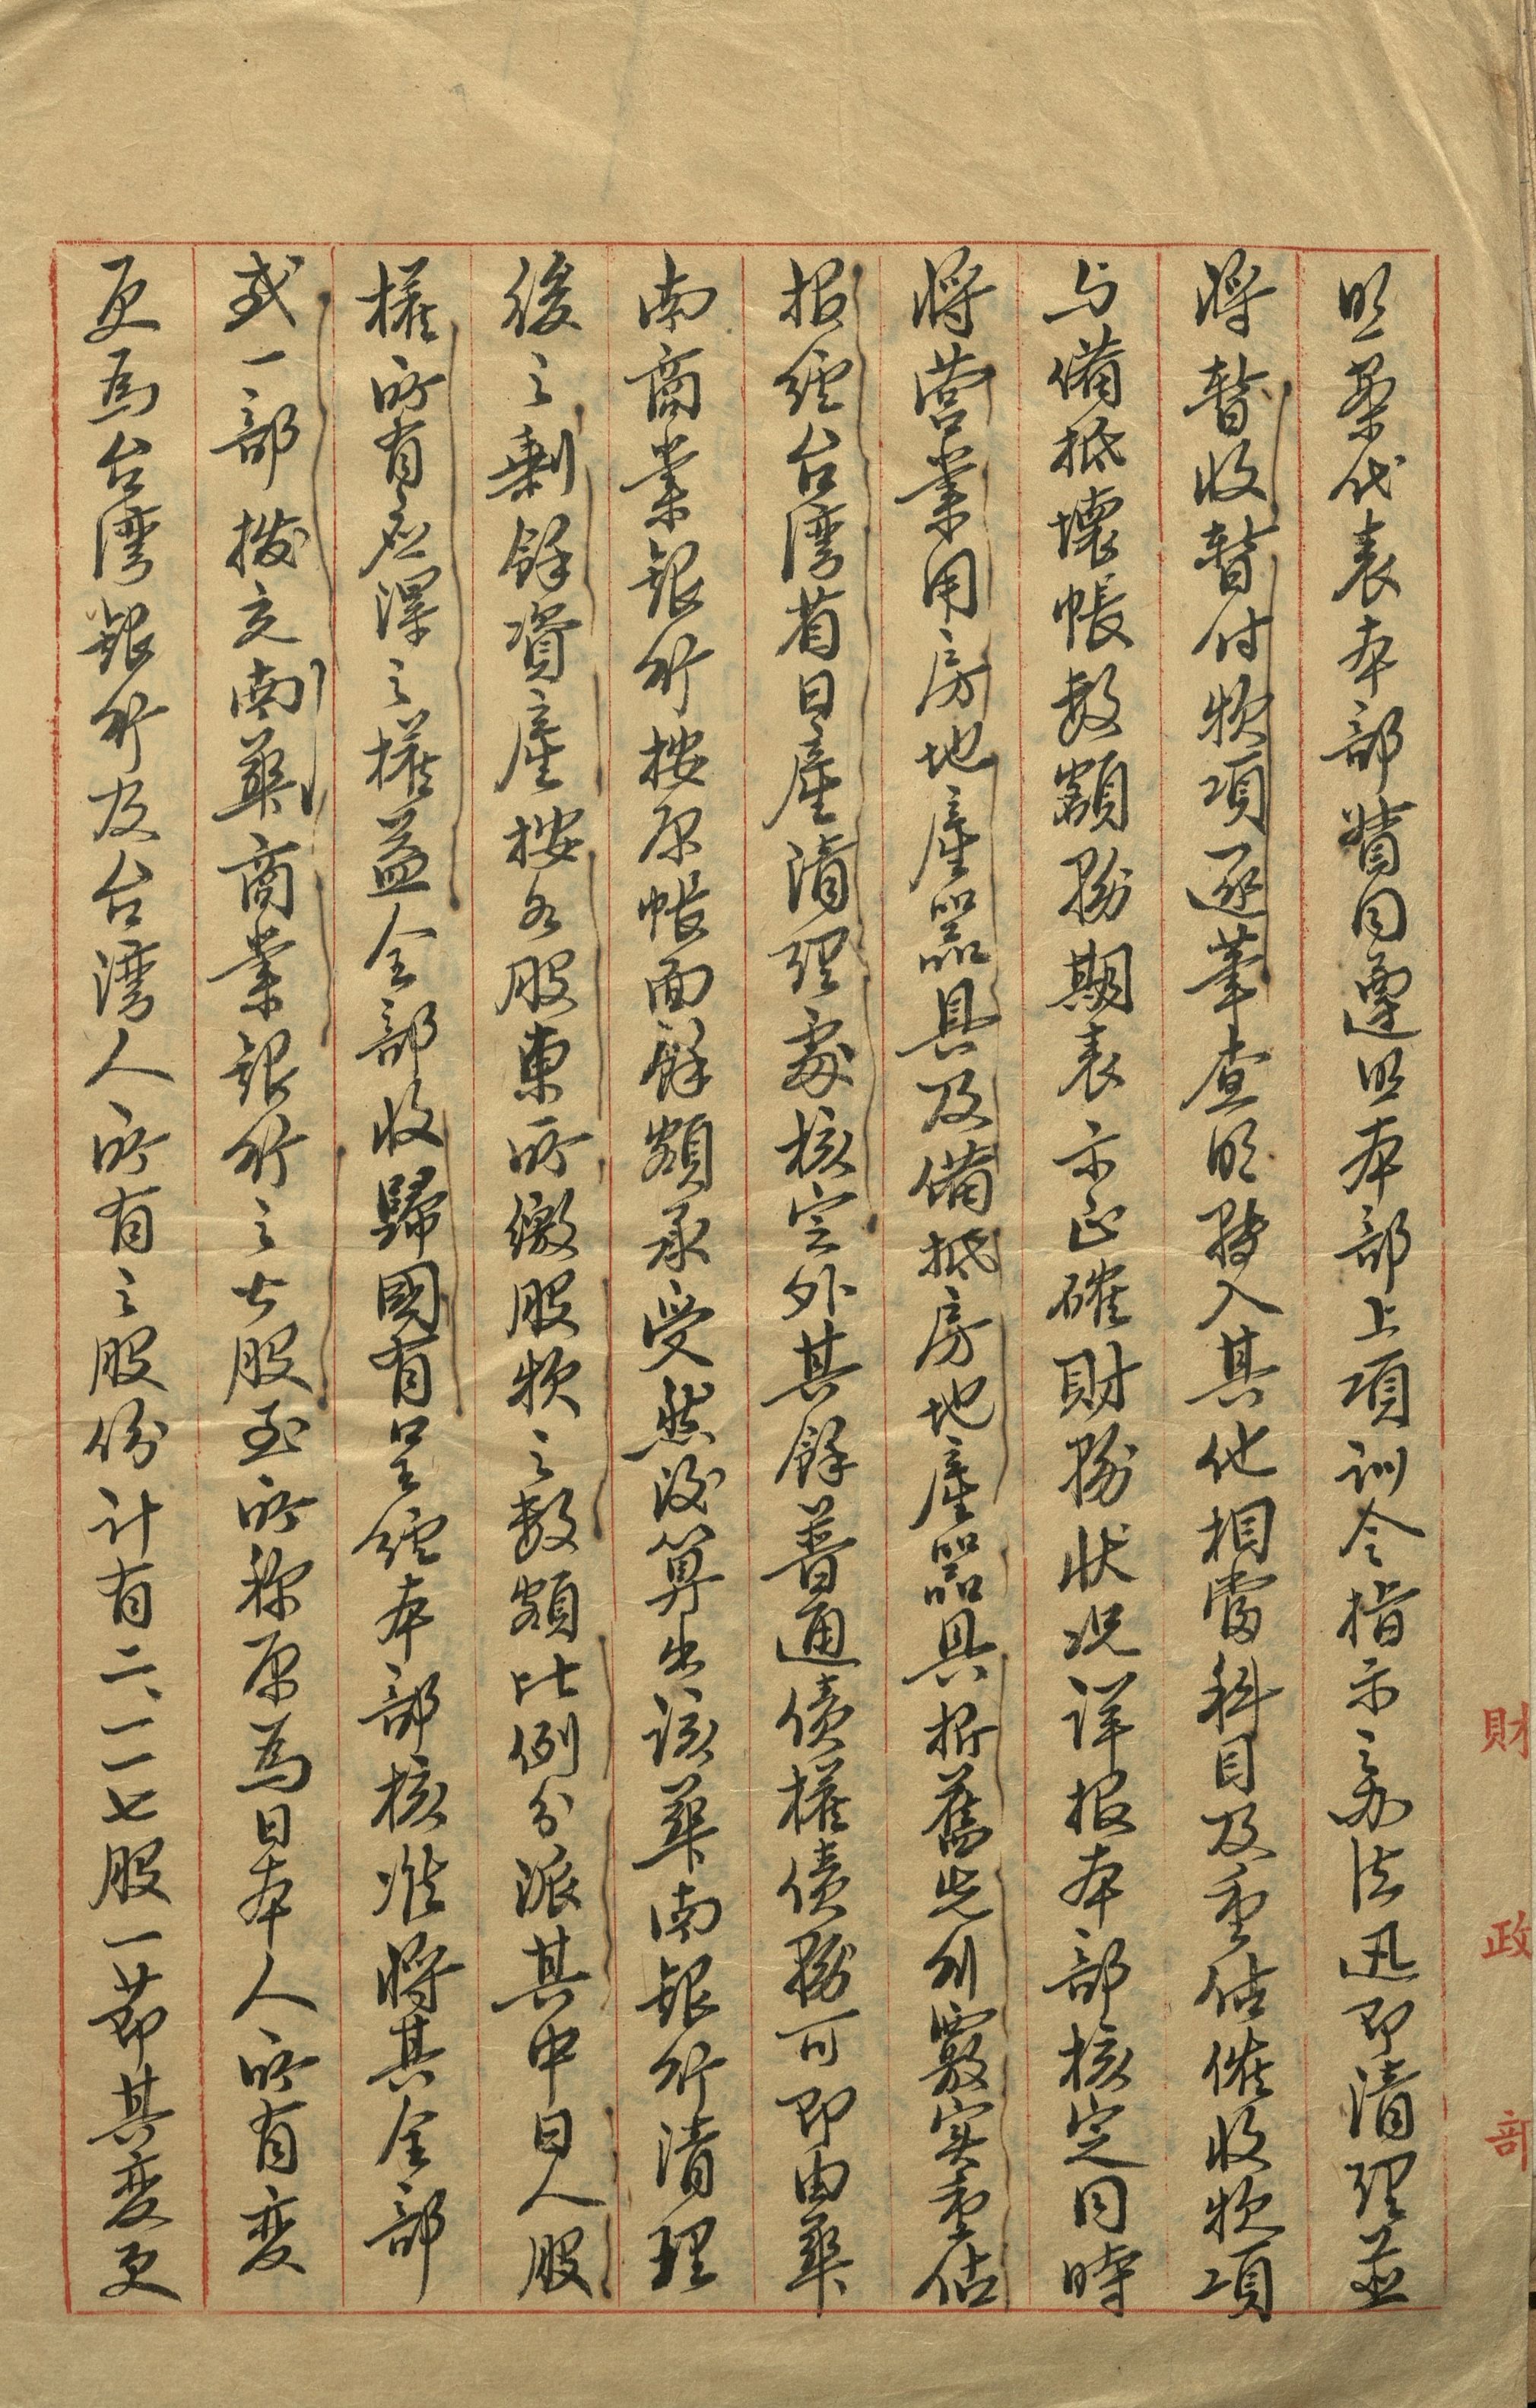 思黎代表本部賫同遵照本部上項訓令指示之办法迅即清理並
將暫收暫付款項逐筆查明轉入其他相當科目及重估催收款項
与備抵壞帳数額務期表示正確財務状况详报本部核定同時
將营業用房地產器具及備抵房地產器具折舊先列覈实重估
报經台湾省日產清理處核定外其餘普通债權债務可即由華
南商業銀行按原帳面餘額承受然後算出該華南銀行清理
後之剩餘資產按各股東所繳股款之数額比例分派其中日人股
權所有应得之權益全部收歸國有呈經本部核准將其全部
或一部撥充南華商業銀行之士股至所称原為日本人所有变
更為台湾銀行及台湾人所有之股份計有二、一一七股一節其变更
財政部